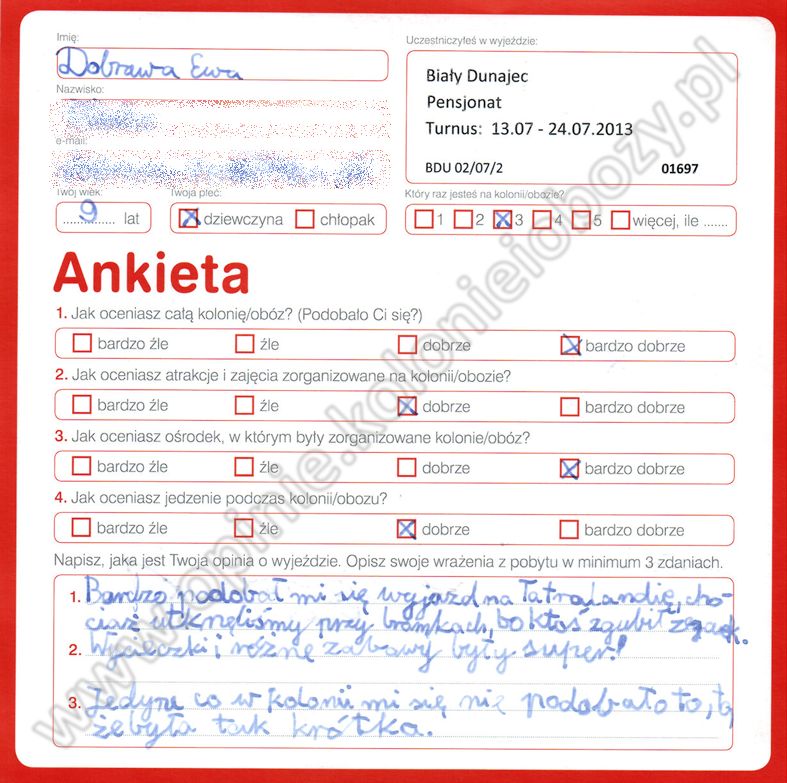 Imię:
Dobrawa Ewa
Nazwisko:
e-mail:
Twój wiek:
9 lat
Twoja płeć:
dziewczyna chłopak
Uczestniczyłeś w wyjeździe:
Biały Dunajec
Pensjonat
Turnus: 13.07 - 24.07.2013
BDU 02/07/2 01697
Który raz jesteś na kolonii/obozie?
1 2 3 4 5 więcej, ile .......
Ankieta
1. Jak oceniasz całą kolonię/obóz? (Podobało Ci się?)
bardzo źle źle dobrze bardzo dobrze
2. Jak oceniasz atrakcje i zajęcia zorganizowane na kolonii/obozie?
bardzo źle źle dobrze bardzo dobrze
3. Jak oceniasz ośrodek, w którym były zorganizowane kolonie/obóz?
bardzo źle źle dobrze bardzo dobrze
4. Jak oceniasz jedzenie podczas kolonii/obozu?
bardzo źle źle dobrze bardzo dobrze
Napisz, jaka jest Twoja opinia o wyjeździe. Opisz swoje wrażenia z pobytu w minimum 3 zdaniach.
1. Bardzo podobał mi się wyjazd na Tatralandię, cho-
ciaż utknęliśmy przy bramkach, bo ktoś zgubił zegarek.
2. Wycieczki i różne zabawy były super!
3. Jedyne co w kolonii mi się nie podobało to, to
że była tak krótka.
www.opinie.kolonieiobozy.pl